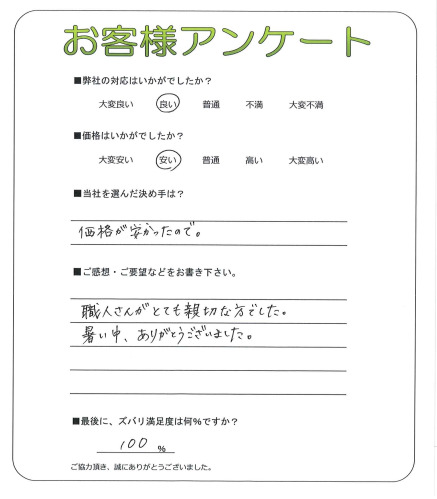 お客様アンケート
■弊社の対応はいかがでしたか？
大変良い 良い 普通 不満 大変不満
■価格はいかがでしたか？
大変安い 安い 普通 高い 大変高い
■当社を選んだ決め手は？
価格が安かったので。
■ご感想・ご要望などをお書き下さい。
職人さんがとても親切な方でした。
暑い中、ありがとうございました。
■最後に、ズバリ満足度は何％ですか？
100 ％
ご協力頂き、誠にありがとうございました。